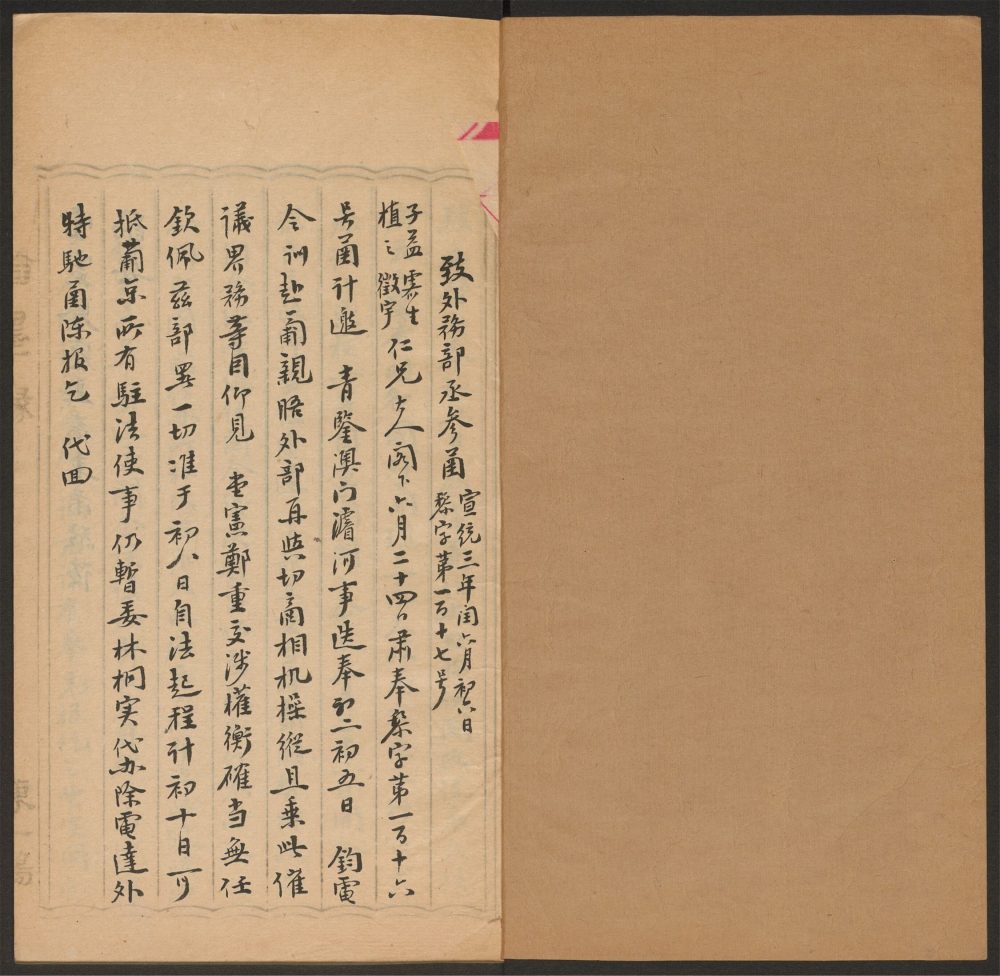 致外務部丞參函 宣統三年閏六月初六日
黎字第一百十七号
子益 霱生
植之 徵宇 仁兄大人閣下六月二十四日肅奉黎字第一百十六
号函计邀 青鑒澳门濬河事迭奉初二初五日 鈞電
令训赴葡親晤外部再與切商相机操縱且乘此催
議界務等因仰見 堂憲鄭重交涉權衡確当無任
欽佩兹部署一切准于初八日自法起程计初十日可
抵葡京所有駐法使事仍暫委林桐实代办除電達外
特馳函陈报乞 代回